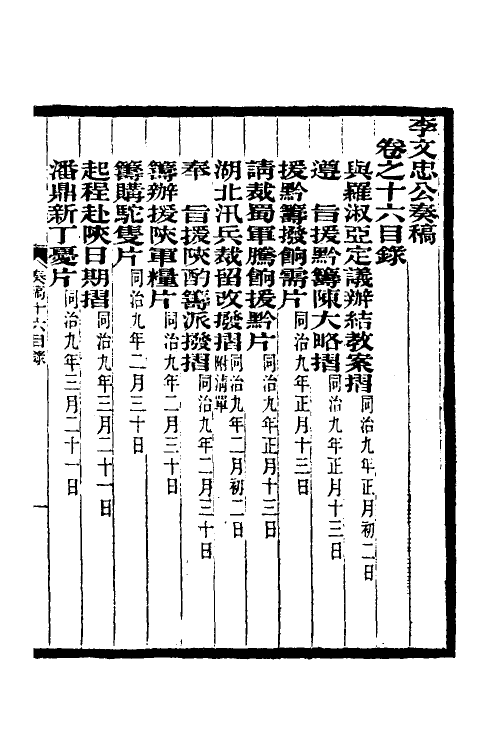 李文忠公奏稿
卷之十六目錄
與羅淑亞定議辦結教案摺同治九年正月初二日
遵 旨援黔籌陳大略摺同治九年正月十三日
援黔籌撥餉需片同治九年正月十三日
請裁蜀軍騰餉援黔片同治九年正月十三日
湖北汛兵裁留改撥摺附清單同治九年二月初二日
奉 旨援陝酌籌派撥摺同治九年二月三十日
籌辦援陝軍糧片同治九年二月三十日
籌購駝隻片同治九年二月三十日
起程赴陝日期摺同治九年三月二十一日
潘鼎新丁憂片同治九年三月二十一日
奏稿十六目錄
一